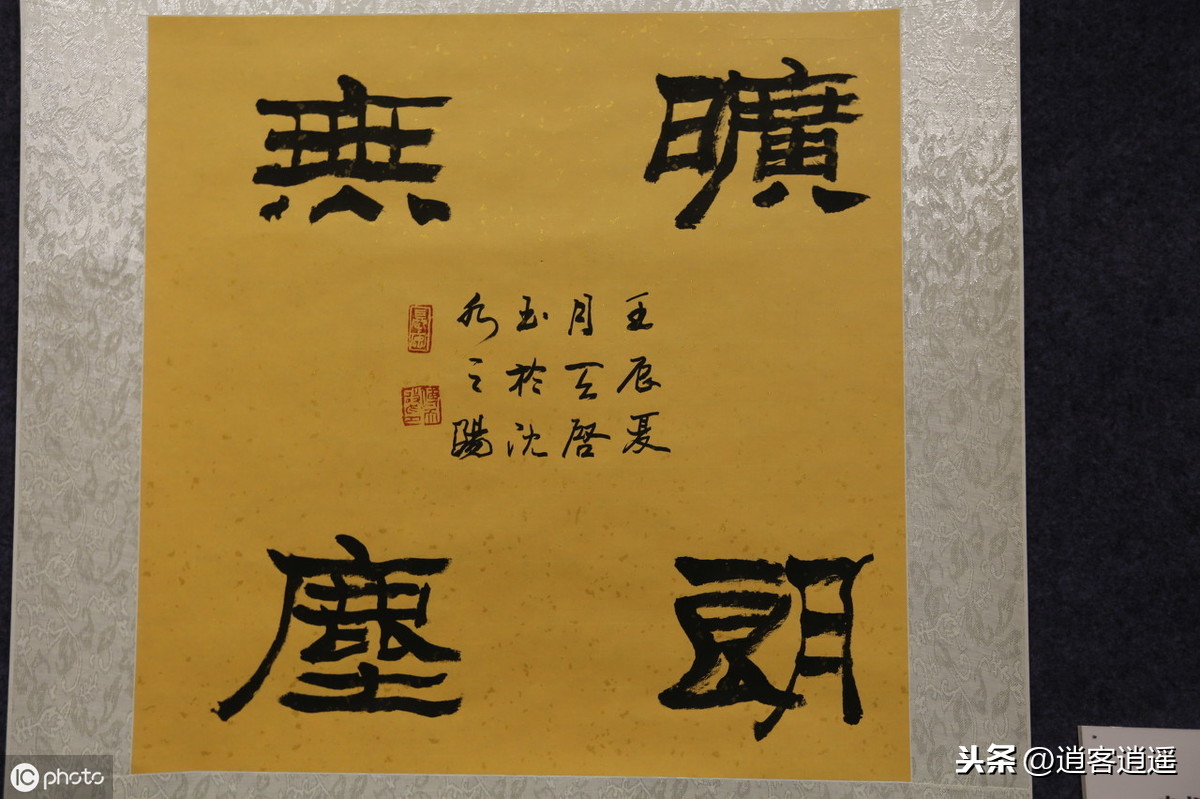 曠朗
無塵
壬辰夏
月天啓
書於沈
水之陽
IC photo
头条 @逍客逍遥